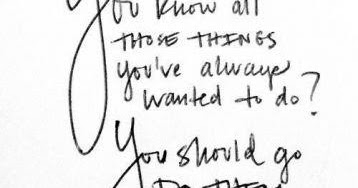 You know all
THOSE THINGS
you've always
wanted to do?
You should go
DO THEM